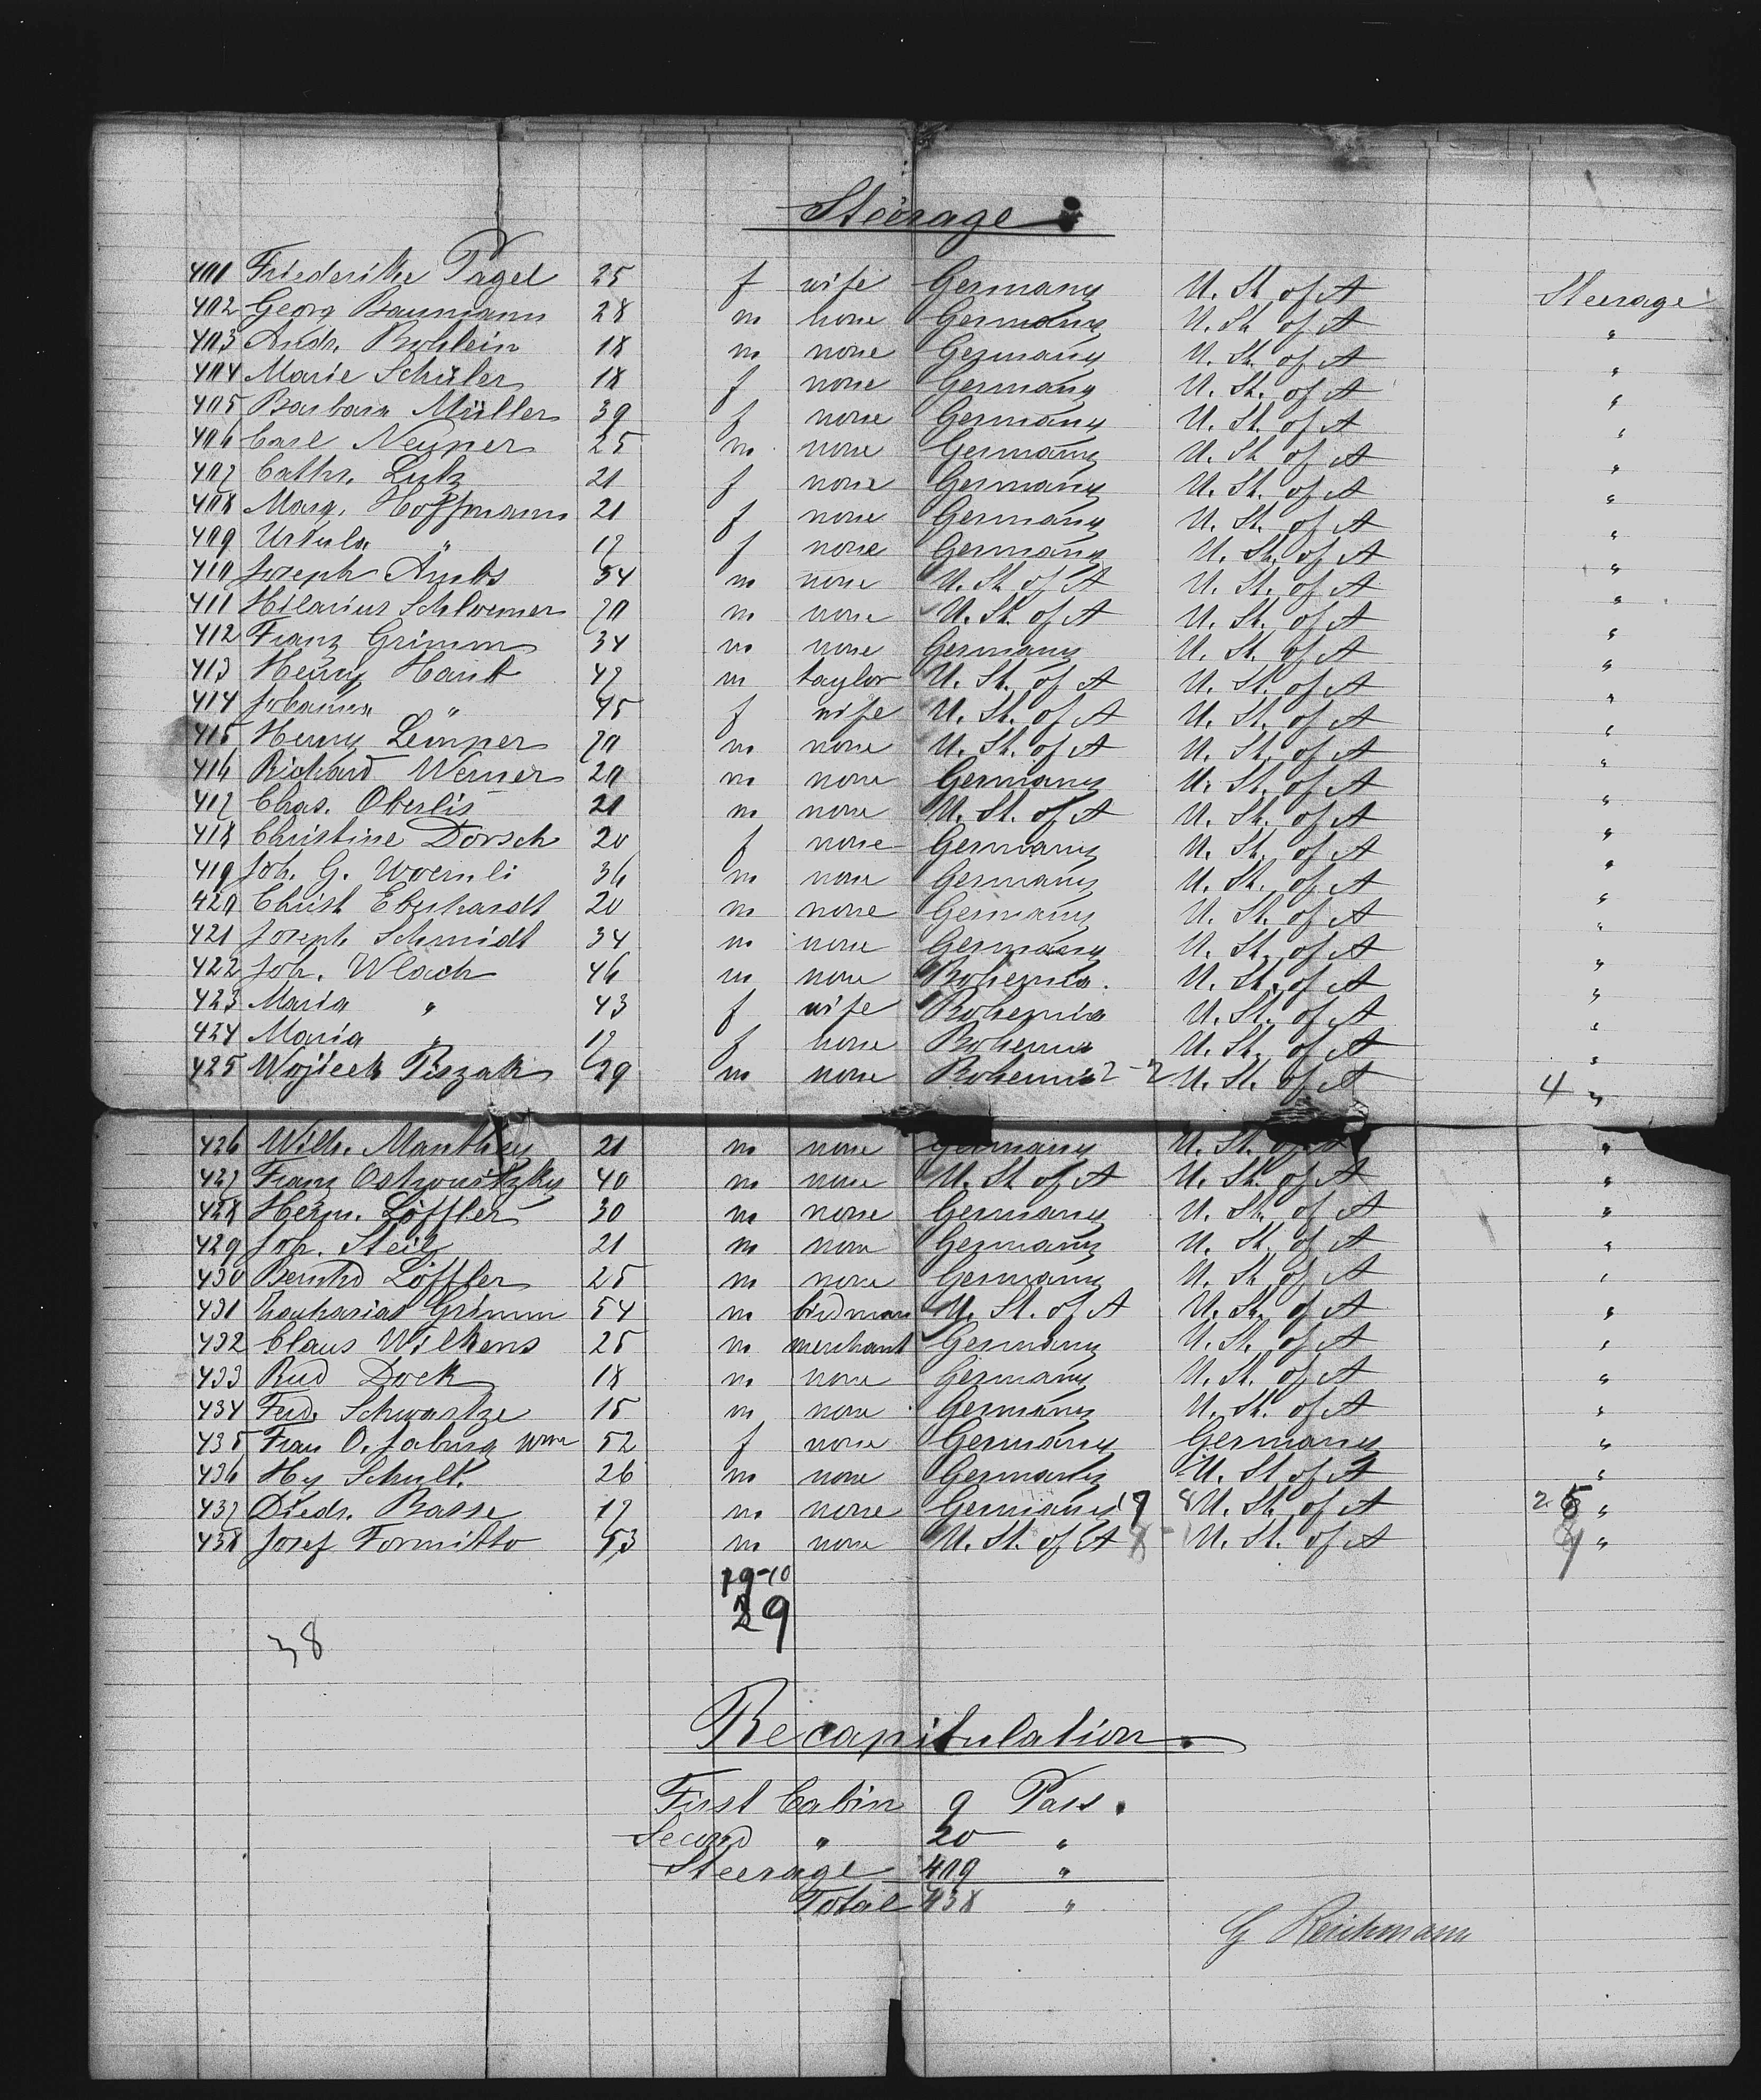 Steerage
401 Friederike Pagel 25 f wife Germany U. St. of A Steerage
402 Georg Baumann 28 m none Germany U. St. of A "
403 Andr. Böhlein 18 m none Germany U. St. of A "
404 Marie Schüler 18 f none Germany U. St. of A "
405 Barbara Müller 39 f none Germany U. St. of A "
406 Carl Neuner 25 m none Germany U. St. of A "
407 Cathr. Lutz 21 f none Germany U. St. of A "
408 Marg. Hoffmann 21 f none Germany U. St. of A "
409 Ursula " 17 f none Germany U. St. of A "
410 Joseph Ambs 34 m none U. St. of A U. St. of A "
411 Hilarius Schloemer 70 m none U. St. of A U. St. of A "
412 Franz Grimm 34 m none Germany U. St. of A "
413 Henry Hank 47 m taylor U. St. of A U. St. of A "
414 Johanna " 45 f wife U. St. of A U. St. of A "
415 Henry Lemper 70 m none U. St. of A U. St. of A "
416 Richard Werner 20 m none Germany U. St. of A "
417 Chas. Oberlis 21 m none U. St. of A U. St. of A "
418 Christine Dorsch 20 f none Germany U. St. of A "
419 Joh. G. Woernli 36 m none Germany U. St. of A "
420 Christ Eberhardt 20 m none Germany U. St. of A "
421 Joseph Schmidt 34 m none Germany U. St. of A "
422 Joh. Wlach 46 m none Bohemia. U. St. of A "
423 Maria " 43 f wife Bohemia U. St. of A "
424 Maria " 17 f none Bohemia U. St. of A "
425 Wojteck Piszak 29 m none Bohemia 2-2 U. St. of A 4 "
426 Wilh. Manthey 21 m none Germany U. St. of A "
427 Franz Ostrowitzky 40 m none U. St. of A U. St. of A "
428 Herm. Löffler 30 m none Germany U. St. of A "
429 Joh. Steil 21 m none Germany U. St. of A "
430 Bernhd Löffler 25 m none Germany U. St. of A "
431 Zacharias Grimm 54 m birdman U. St. of A U. St. of A "
432 Claus Wilkens 25 m merchant Germany U. St. of A "
433 Rud Dock 18 m none Germany U. St. of A "
434 Ferd. Schwartze 15 m none Germany U. St. of A "
435 Frau O. Jaburg 52 f none Germany Germany "
436 Hy Schult. 26 m none Germany U. St. of A "
437 Diedr. Basse 17 m none Germany 17 8 U. St. of A 25 "
438 Josef Formitto 53 m none U. St. of A 8 - 1 U. St. of A 9 "
19-10
29
38
Recapitulation.
First Cabin 9 Pass.
Second " 20 "
Steerage 409 "
Total 438 "
G Reichmann